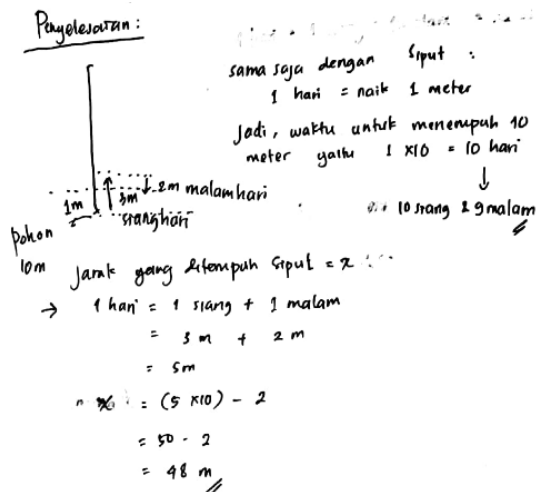 Penyelesaian :
sama saja dengan siput :
1 hari = naik 1 meter
Jadi, waktu untuk menempuh 10
meter yaitu 1 x 10 = 10 hari
↓
10 siang & 9 malam
2m malam hari
3m
1m
siang hari
Pohon
10m
Jarak yang ditempuh siput = x
→ 1 hari = 1 siang + 1 malam
= 3 m + 2 m
= 5m
x = (5 x 10) - 2
= 50 - 2
= 48 m